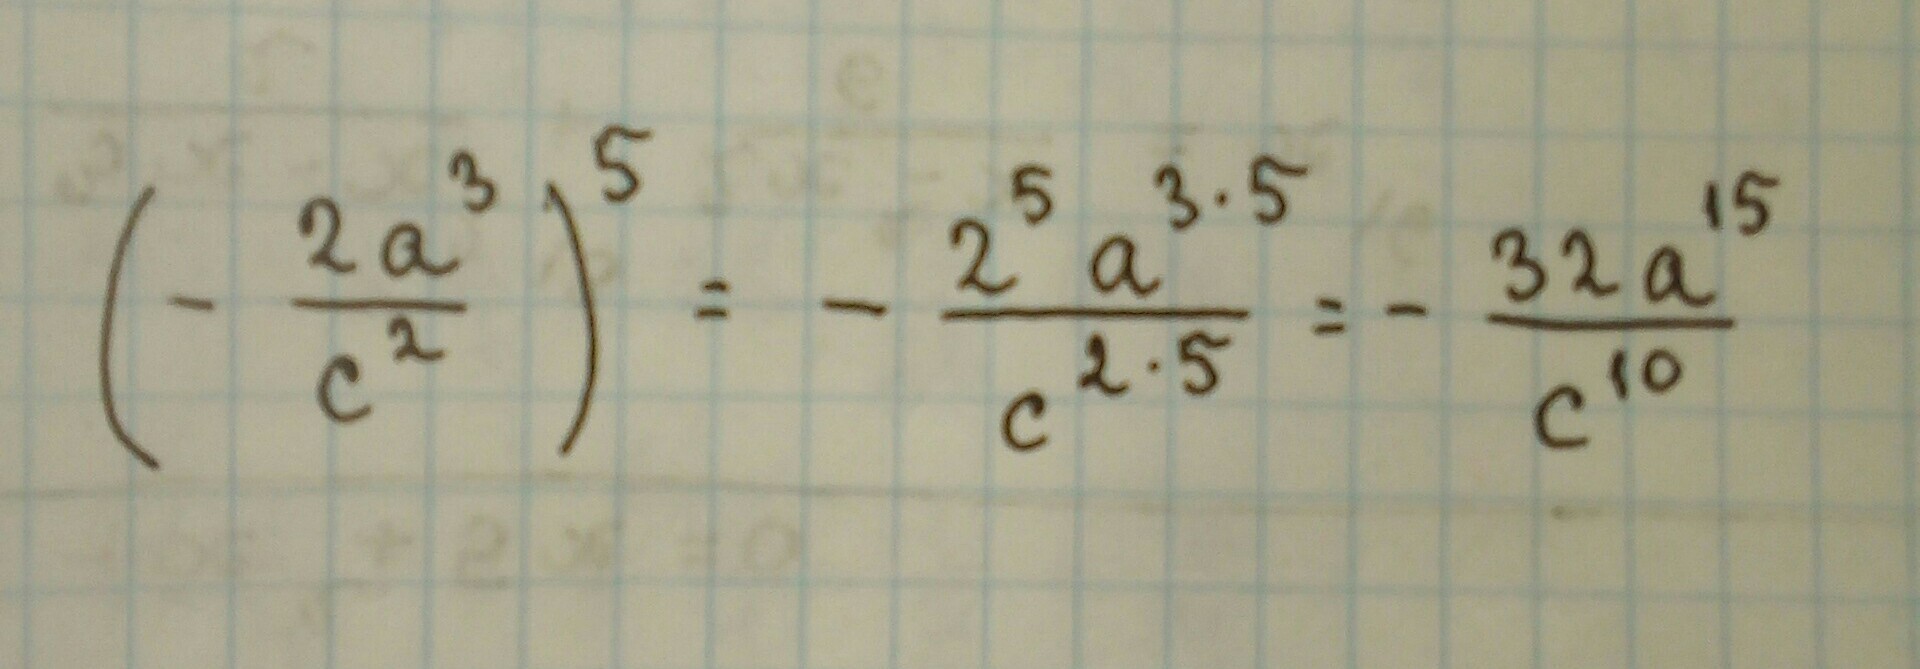 (- 2a³/c²)⁵ = - 2⁵a³·⁵/c²·⁵ = - 32a¹⁵/c¹⁰